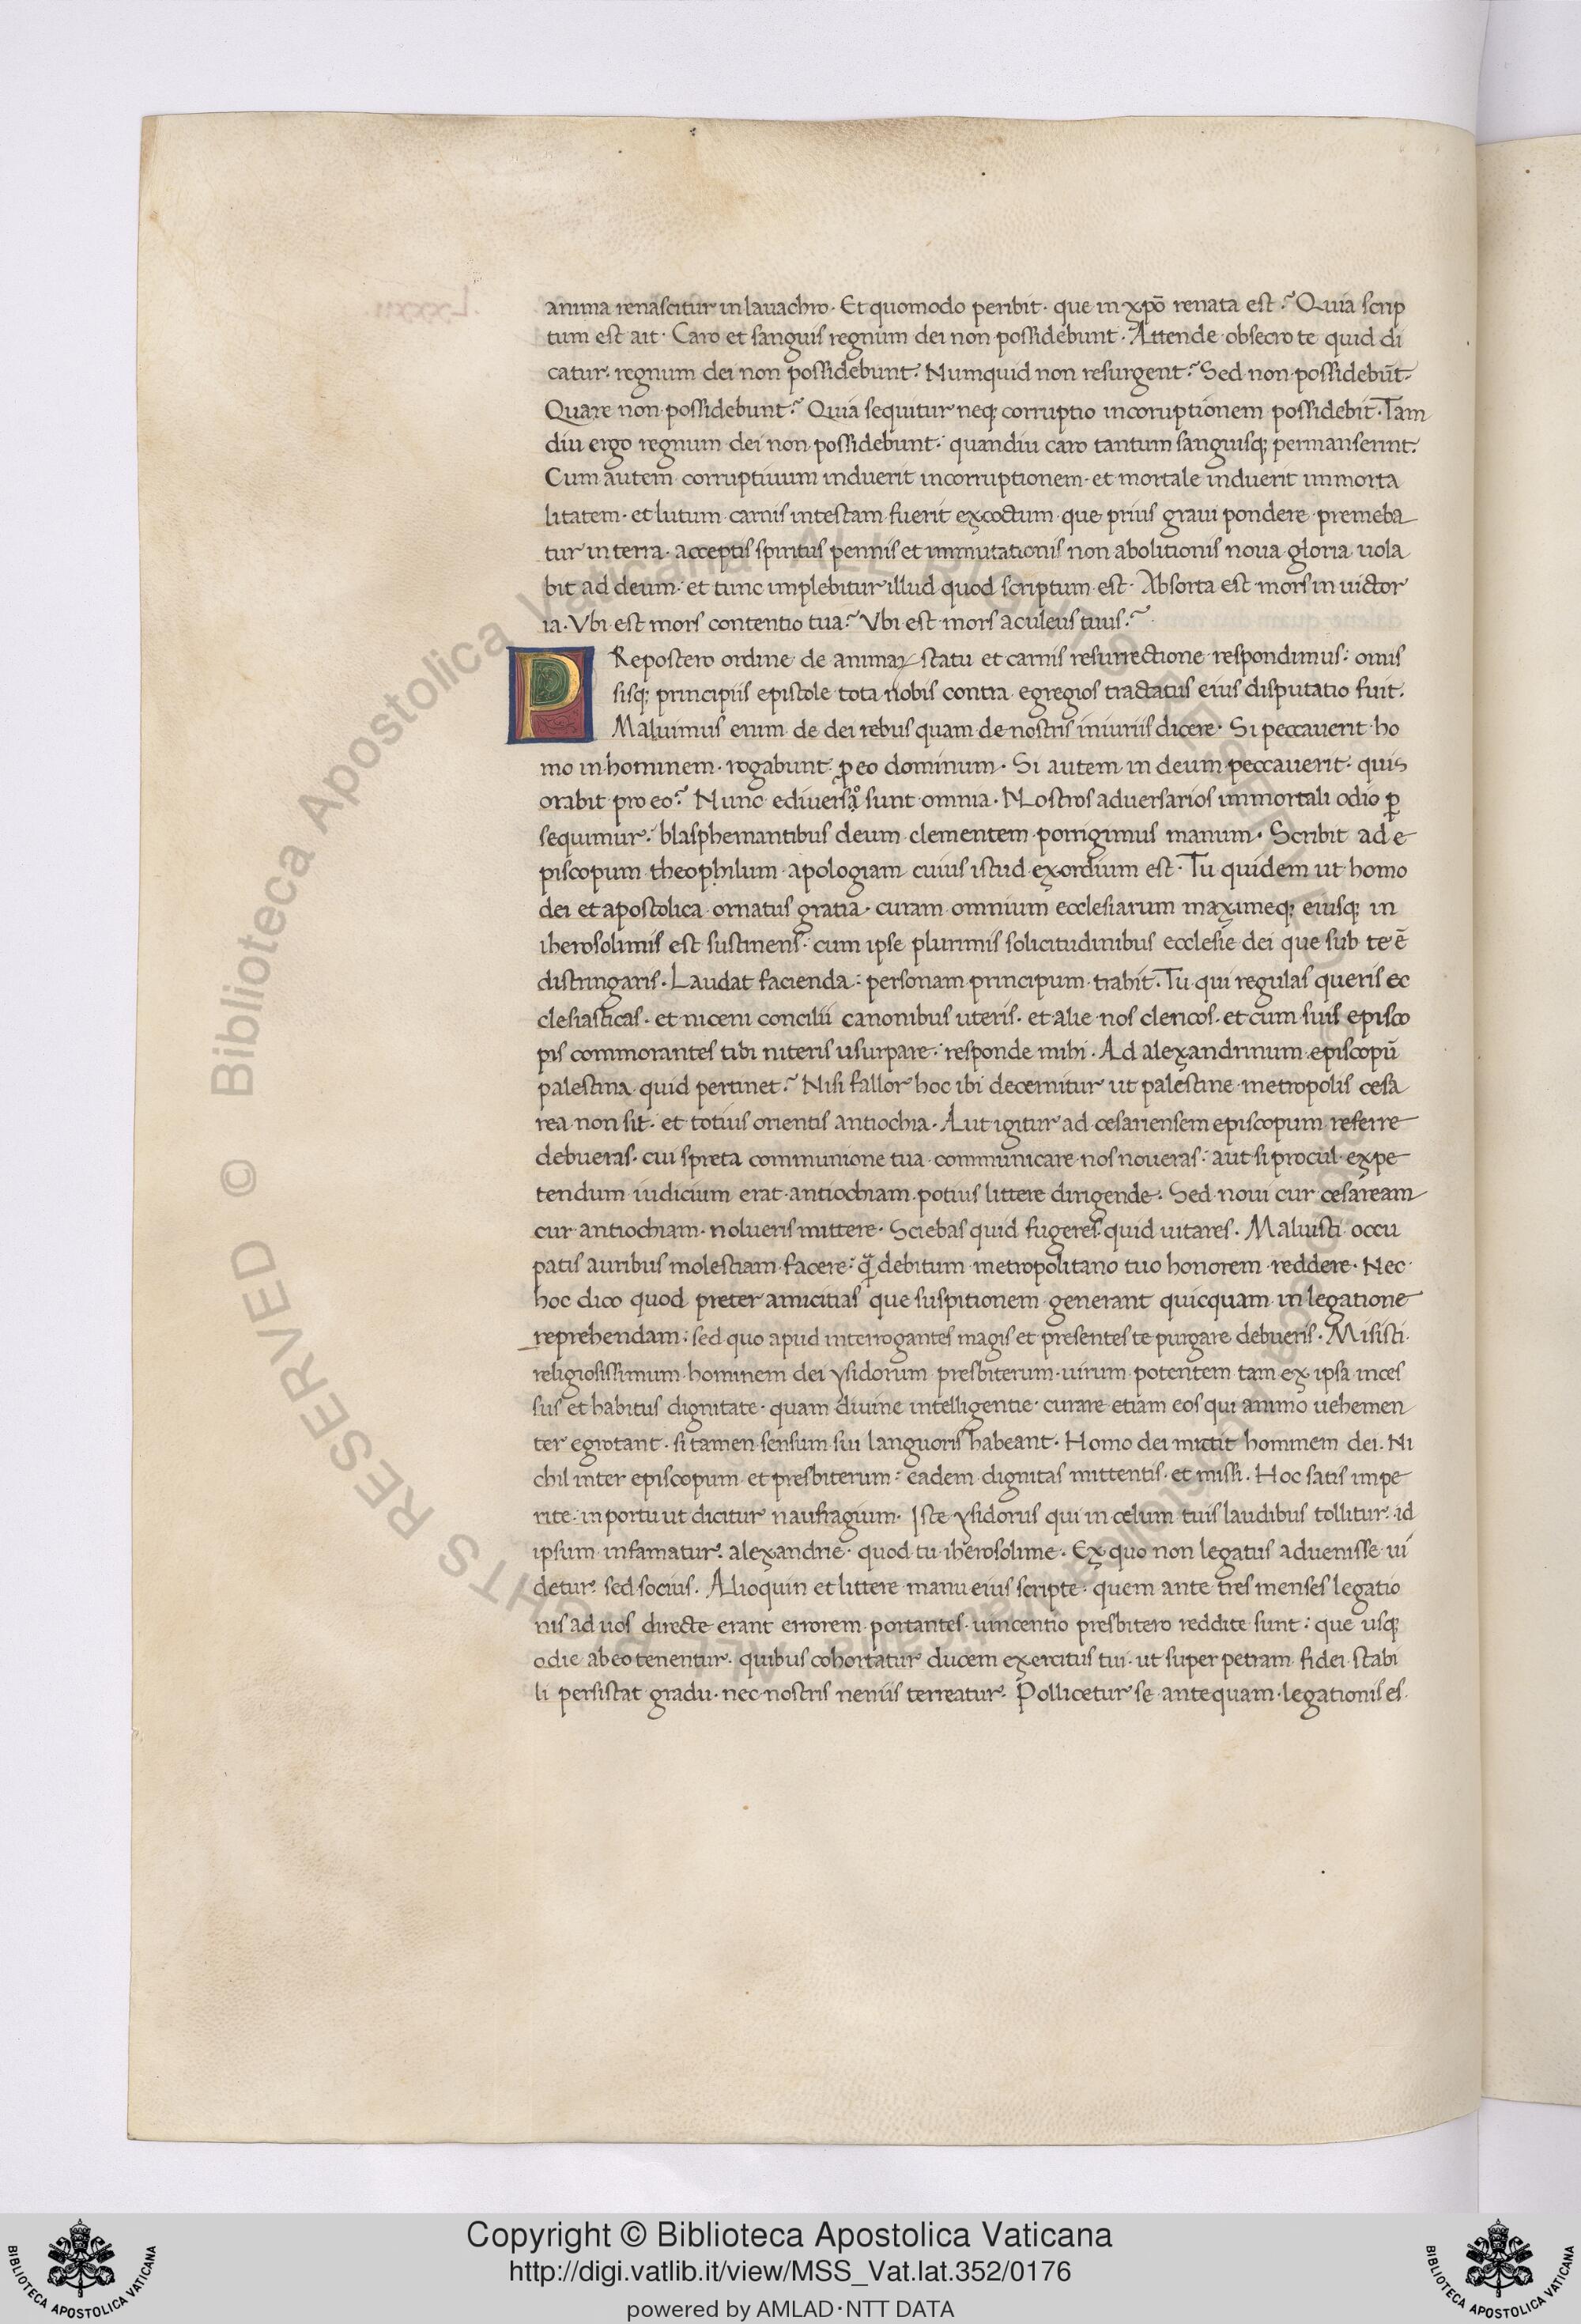 anima renascitur in lauachro. Et quomodo peribit. que in xpō renata est? Quia scrip
tum est ait. Caro et sanguis regnum dei non possidebunt. Attende obsecro te quid di
catur. regnum dei non possidebunt. Numquid non resurgent? Sed non possidebūt.
Quare non possidebunt? Quia sequitur neq; corruptio incoruptionem possidebit. Tam
diu ergo regnum dei non possidebunt: quandiu caro tantum sanguisq; permanserint.
Cum autem corruptiuum induerit incorruptionem. et mortale induerit immorta
litatem. et lutum carnis in testam fuerit excoctum que prius graui pondere premeba
tur in terra. acceptis spiritus pennis et immutationis non abolitionis noua gloria uola
bit ad deum: et tunc implebitur illud quod scriptum est. Absorta est mors in uictor
ia. Vbi est mors contentio tua? Vbi est mors aculeus tuus?
PRepostero ordine de animaꝝ statu et carnis resurrectione respondimus: omis
sisq; principiis epistole tota nobis contra egregios tractatus eius disputatio fuit.
Maluimus enim de dei rebus quam de nostris iniuriis dicere. Si peccauerit ho
mo in hominem. rogabunt pro eo dominum. Si autem in deum peccauerit. quis
orabit pro eo? Nunc ediuerso sunt omnia. Nostros aduersarios immortali odio ꝑ
sequimur: blasphemantibus deum clementem porrigimus manum. Scribit ad e
piscopum theophilum apologiam cuius istud exordium est. Tu quidem ut homo
dei et apostolica ornatus gratia. curam omnium ecclesiarum maximeq; eiusq; in
iherosolimis est sustinens. cum ipse plurimis solicitudinibus ecclesie dei que sub te ē
distringaris. Laudat facienda: personam principum trahit. Tu qui regulas queris ec
clesiasticas. et niceni concilii canonibus uteris. et alie nos clericos. et cum suis episco
pis commorantes tibi niteris usurpare: responde mihi. Ad alexandrinum episcopū
palestina quid pertinet? Nisi fallor hoc ibi decernitur ut palestine metropolis cesa
rea non sit. et totius orientis antiochia. Aut igitur ad cesariensem episcopum referre
debueras. cui spreta communione tua communicare nos noueras: aut si procul expe
tendum iudicium erat antiochiam potius littere dirigende. Sed noui cur cesaream
cur antiochiam nolueris mittere. Sciebas quid fugeres. quid uitares. Maluisti occu
patis auribus molestiam facere: qͣ debitum metropolitano tuo honorem reddere. Nec
hoc dico quod preter amicitias que suspitionem generant quicquam in legatione
reprehendam: sed quo apud interrogantes magis et presentes te purgare debueris. Misisti
religiosissimum hominem dei ysidorum presbiterum uirum potentem tam ex ipsa inces
sus et habitus dignitate. quam diuine intelligentie. curare etiam eos qui animo uehemen
ter egrotant. si tamen sensum sui languoris habeant. Homo dei mittit hominem dei. Ni
chil inter episcopum et presbiterum: eadem dignitas mittentis. et missi. Hoc satis impe
rite: in portu ut dicitur naufragium. Iste ysidorus qui in celum tuis laudibus tollitur. id
ipsum infamatur. alexandrie. quod tu iherosolime. Ex quo non legatus aduenisse ui
detur. sed socius. Alioquin et littere manu eius scripte. quem ante tres menses legatio
nis ad uos directe erant errorem portantes. uincentio presbitero reddite sunt: que usq;
odie ab eo tenentur. quibus cohortatur ducem exercitus tui. ut super petram fidei stabi
li persistat gradu. nec nostris neniis terreatur. Pollicetur se antequam legationis es
Copyright © Biblioteca Apostolica Vaticana
http://digi.vatlib.it/view/MSS_Vat.lat.352/0176
powered by AMLAD·NTT DATA
BIBLIOTECA APOSTOLICA VATICANA
BIBLIOTECA APOSTOLICA VATICANA